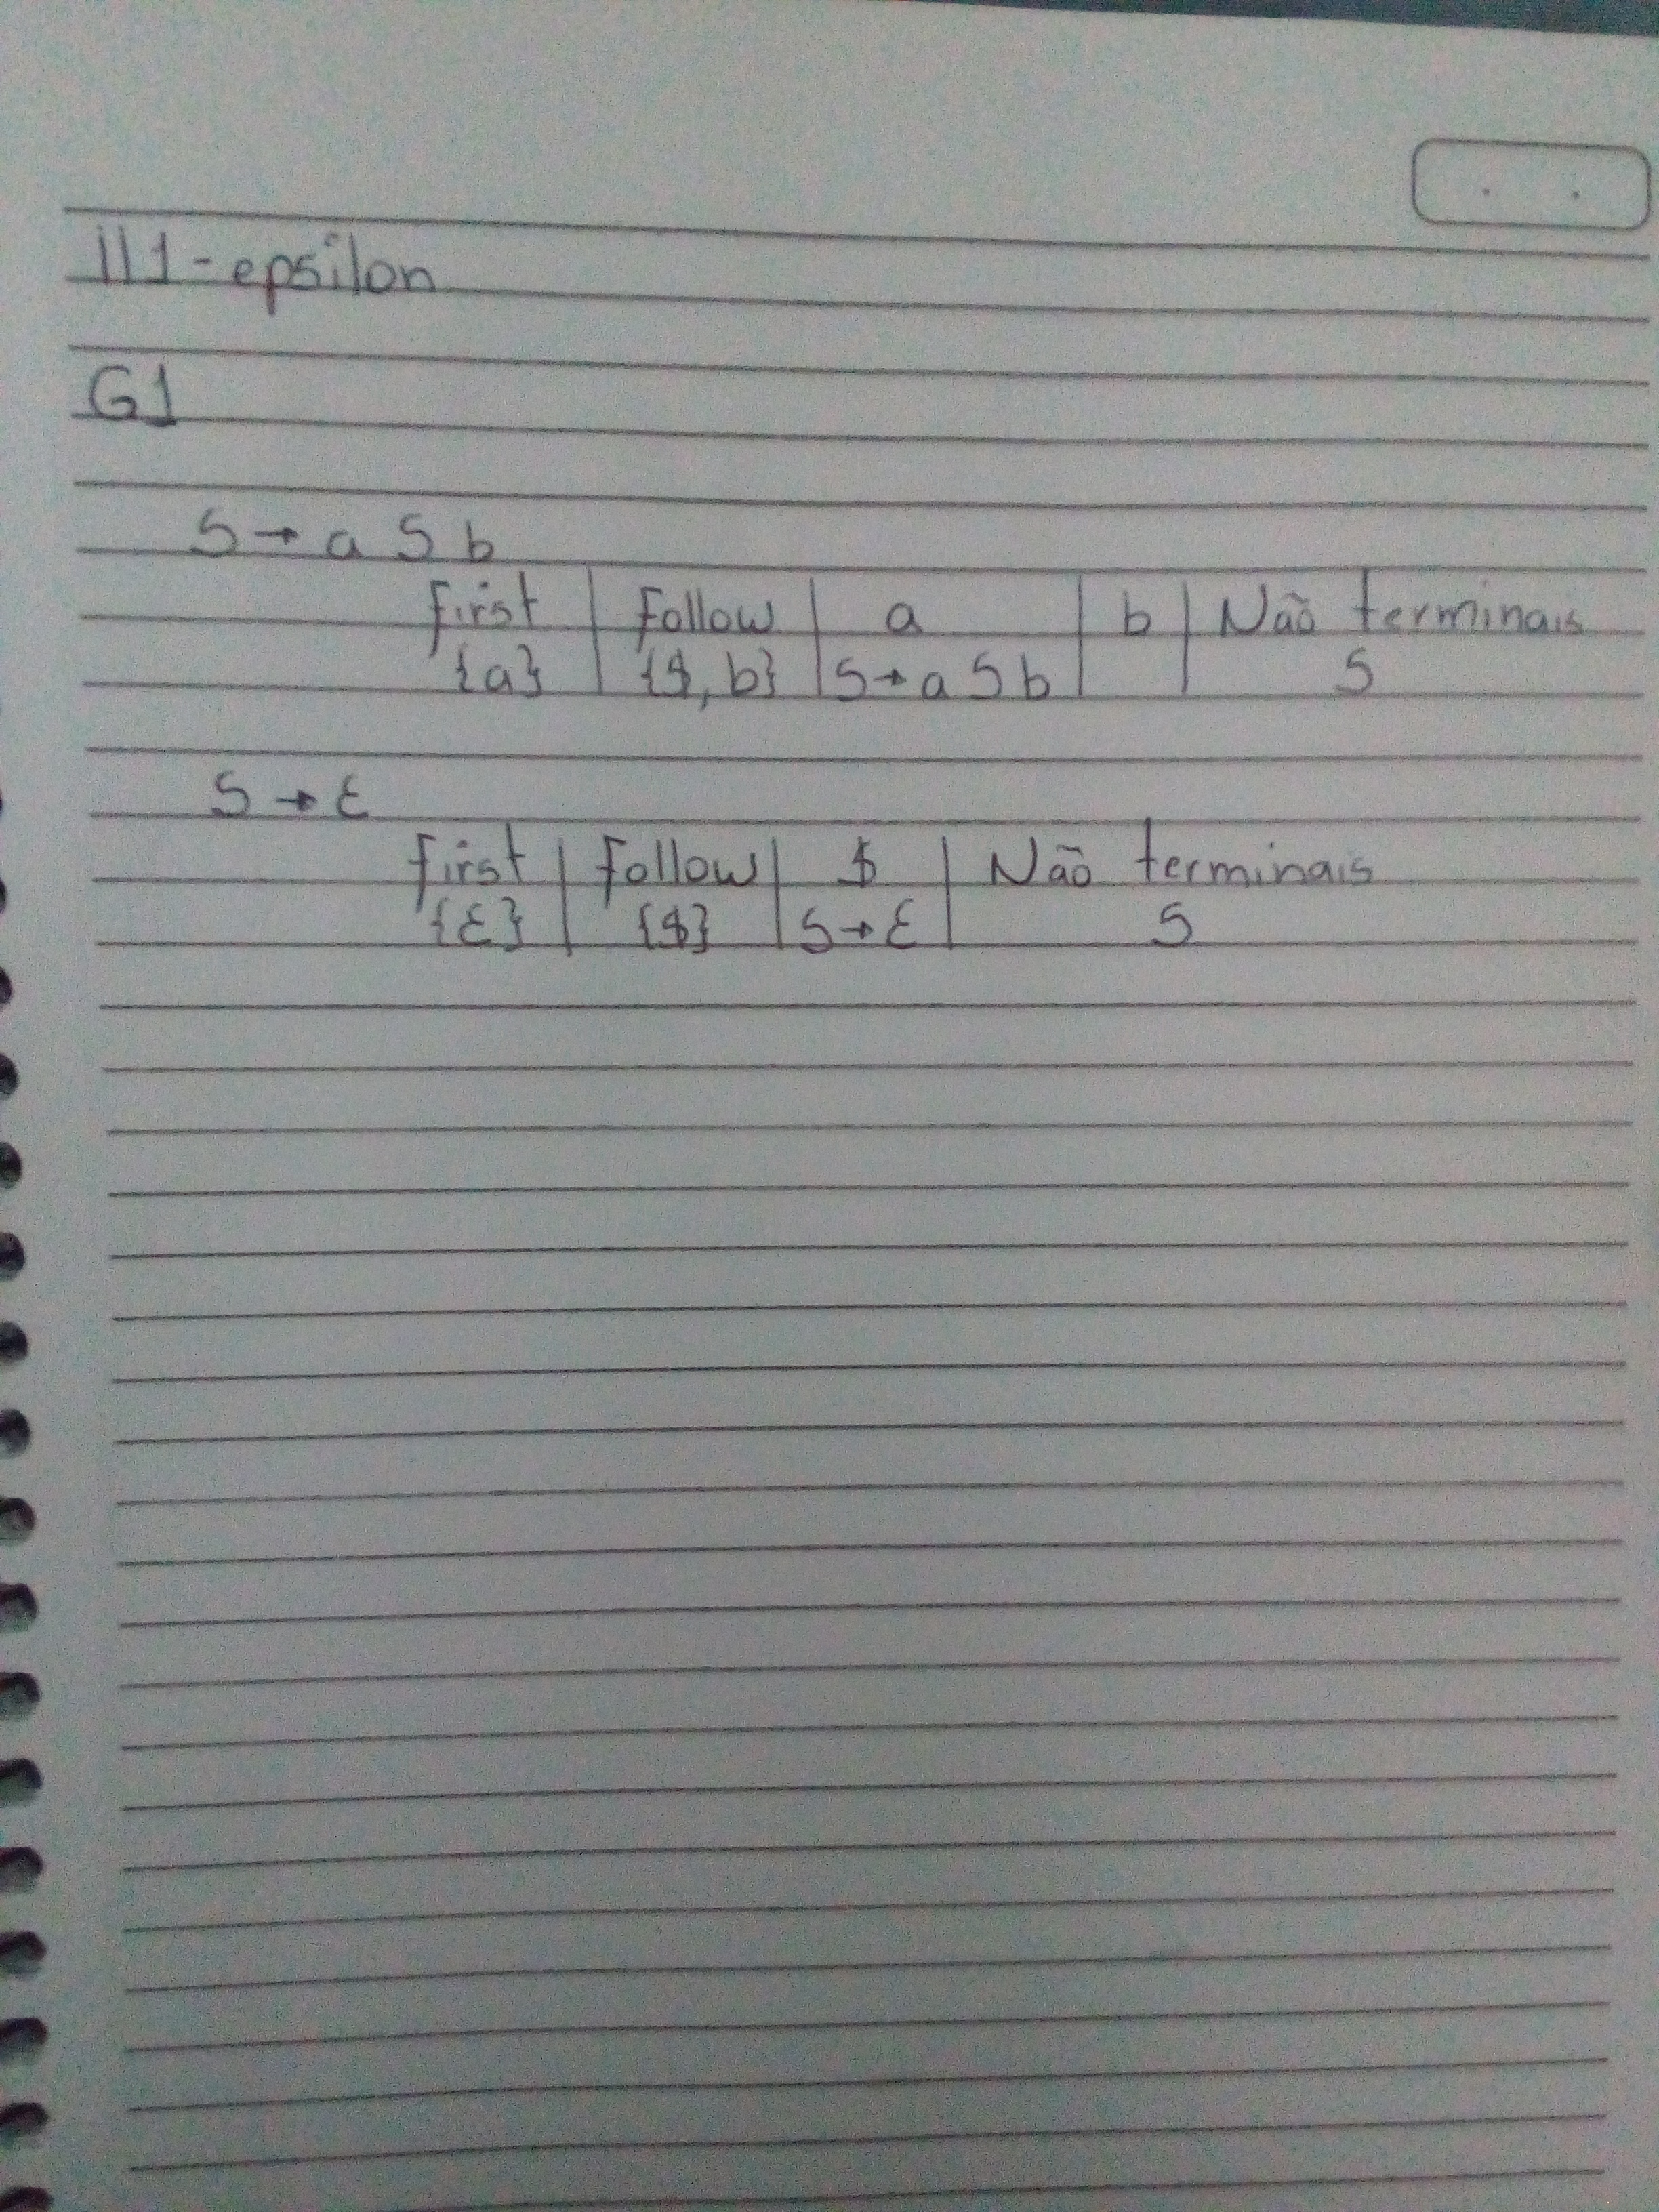 ll1-epsilon
G1
S → a S b
first | follow | a | b | Não terminais
{a} | {$, b} | S → a S b | | S
S → ε
first | follow | $ | Não terminais
{ε} | {$} | S → ε | S